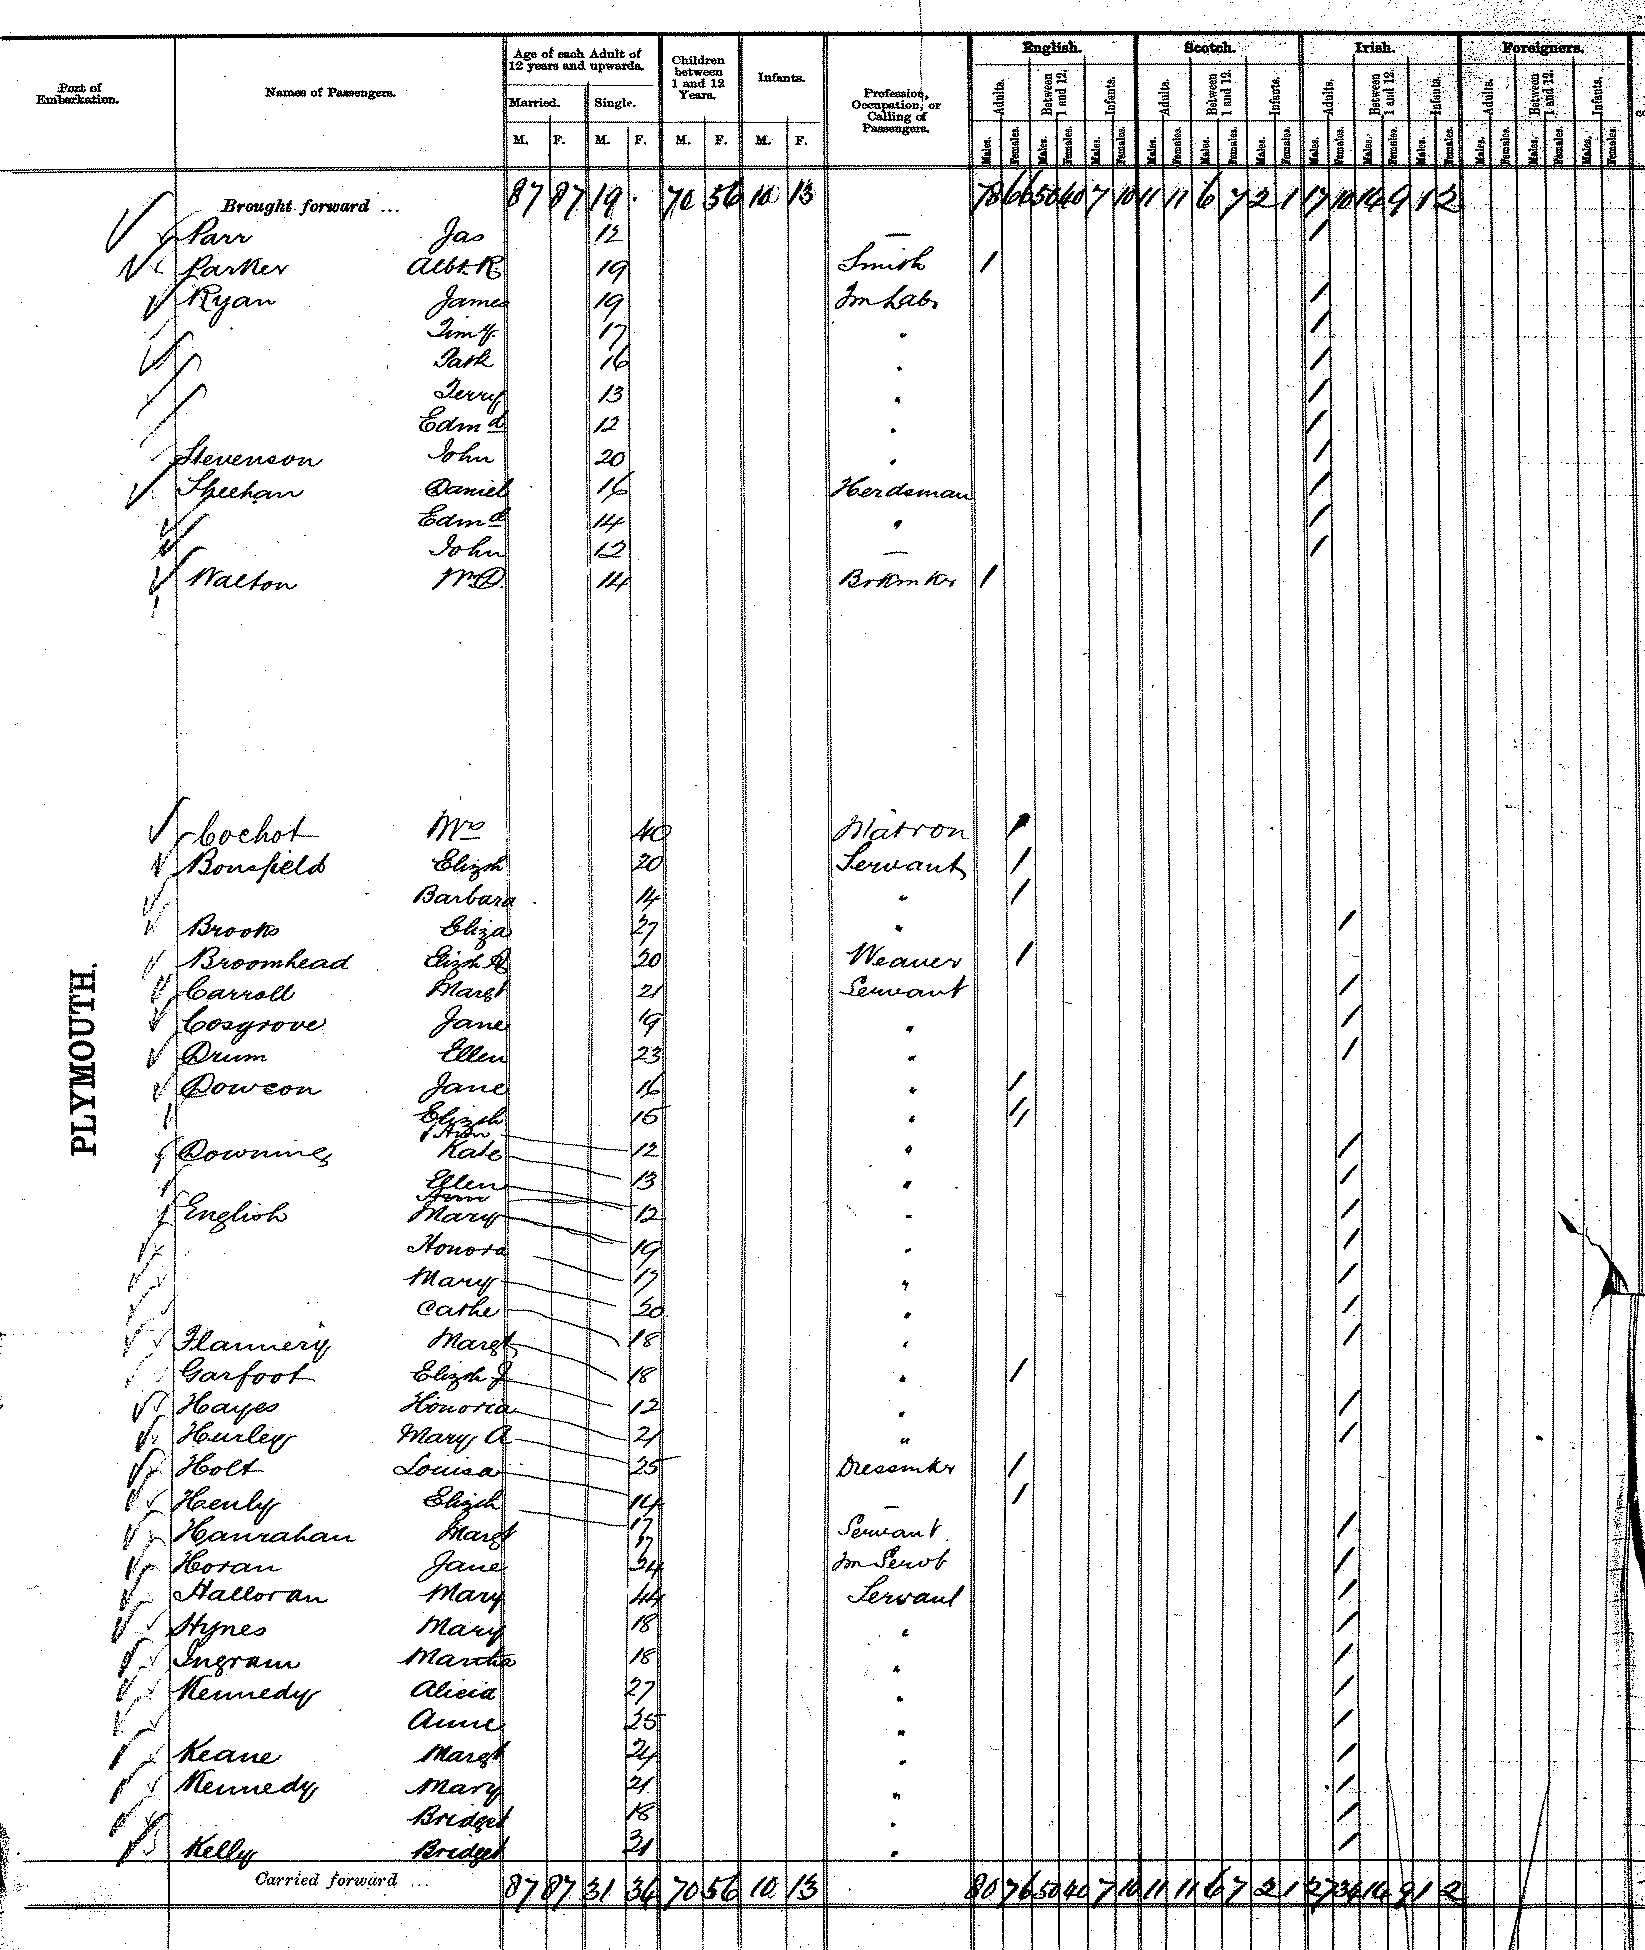 Port of Embarkation. Names of Passengers. Age of each Adult of 12 years and upwards. Married. M. F. Single. M. F. Children between 1 and 12 Years. M. F. Infants. M. F. Profession, Occupation, or Calling of Passengers. English. Adults. Males. Females. Between 1 and 12. Males. Females. Infants. Males. Females. Scotch. Adults. Males. Females. Between 1 and 12. Males. Females. Infants. Males. Females. Irish. Adults. Males. Females. Between 1 and 12. Males. Females. Infants. Males. Females. Foreigners. Adults. Males. Females. Between 1 and 12. Males. Females. Infants. Males. Females.
Brought forward ... 87 87 19 . 70 56 10 13 78 66 50 40 7 10 11 11 6 7 2 1 17 10 14 9 1 2
Parr Jas 12 — /
Parker Albt. R 19 Smith 1
Ryan James 19 Fm Labr /
Timy. 17 " /
Patk 16 " /
Terry 13 " /
Edmd 12 " /
Stevenson John 20 " /
Sheehan Daniel 16 Herdsman /
Edmd 14 " /
John 12 — /
Walton Wm D. 14 Brkmkr 1
PLYMOUTH.
Cochot Mrs 40 Matron /
Bonsfield Elizh 20 Servant /
Barbara 14 " /
Brooks Eliza 27 " /
Broomhead Elizh A 20 Weaver /
Carroll Margt 21 Servant /
Cosgrove Jane 19 " /
Drum Ellen 23 " /
Dowson Jane 16 " /
Elizh 15 " //
Ann
Downing Kate 12 " /
Ellen 13 " /
Ann
English Mary 12 " /
Honora 19 " /
Mary 17 " /
Cathe 20 " /
Flannery Margt 18 " /
Garfoot Elizh J 18 " /
Hayes Honoria 12 " /
Hurley Mary A 21 " /
Holt Louisa 25 Dressmkr /
Henly Elizh 14 — /
Hanrahan Margt 17 17 Servant /
Horan Jane 34 Fm Servt /
Halloran Mary 44 Servant /
Hynes Mary 18 " /
Ingram Martha 18 " /
Kennedy Alicia 27 " /
Anne 25 " /
Keane Margt 24 " /
Kennedy Mary 21 " /
Bridget 18 " /
Kelly Bridget 21 " /
Carried forward ... 87 87 31 34 70 56 10 13 80 76 50 40 7 10 11 11 6 7 2 1 27 34 14 9 1 2